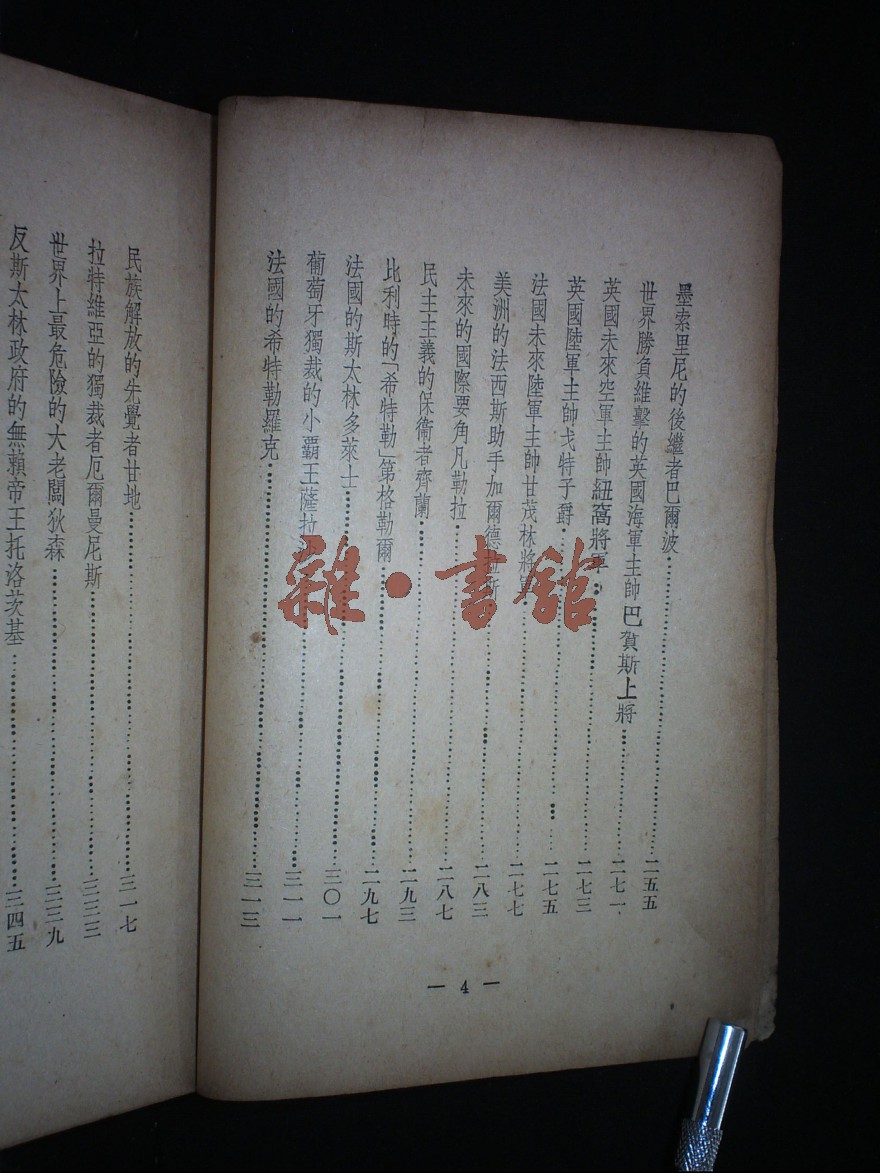 墨索里尼的後繼者巴爾波……二五五
世界勝負維繫的英國海軍主帥巴賀斯上將……二七一
英國未來空軍主帥紐窩將軍……二七三
英國陸軍主帥戈特子爵……二七五
法國未來陸軍主帥甘茂林將軍……二七七
美洲的法西斯助手加爾德拉斯……二八三
未來的國際要角凡勒拉……二八七
民主主義的保衛者齊蘭……二九三
比利時的「希特勒」第格勒爾……二九七
法國的斯太林多萊士……三〇一
葡萄牙獨裁的小霸王薩拉……三一一
法國的希特勒羅克……三一三
— 4 —
民族解放的先覺者甘地……三一七
拉特維亞的獨裁者厄爾曼尼斯……三三三
世界上最危險的大老闆狄森……三三九
反斯太林政府的無賴帝王托洛茨基……三四五
雜·書館